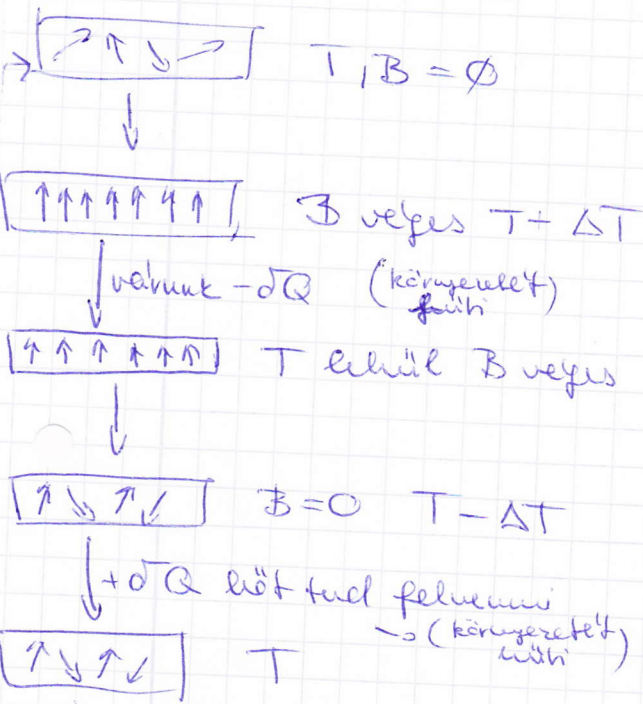 T, B = ∅
B véges T + ΔT
várunk - δQ (környezetét fűti)
T lehűl B véges
B = 0 T - ΔT
+ δQ hőt tud felvenni
→ (környezetét hűti)
T